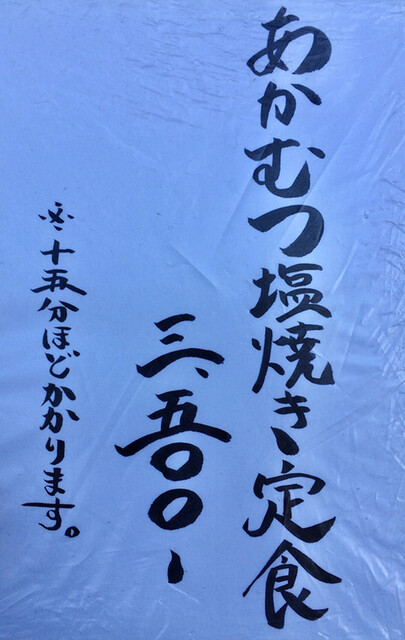 あかむつ塩焼き定食
三、五〇〇-
※十五分ほどかかります。